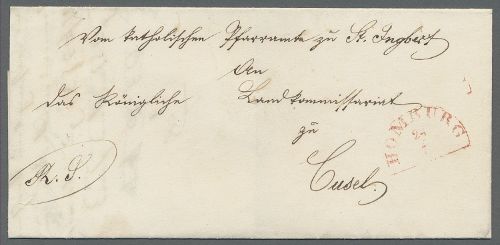 Vom katholischen Pfarramte zu St. Ingbert
An
das Königliche Landkommissariat
zu
Cusel.
R. S.
HOMBURG